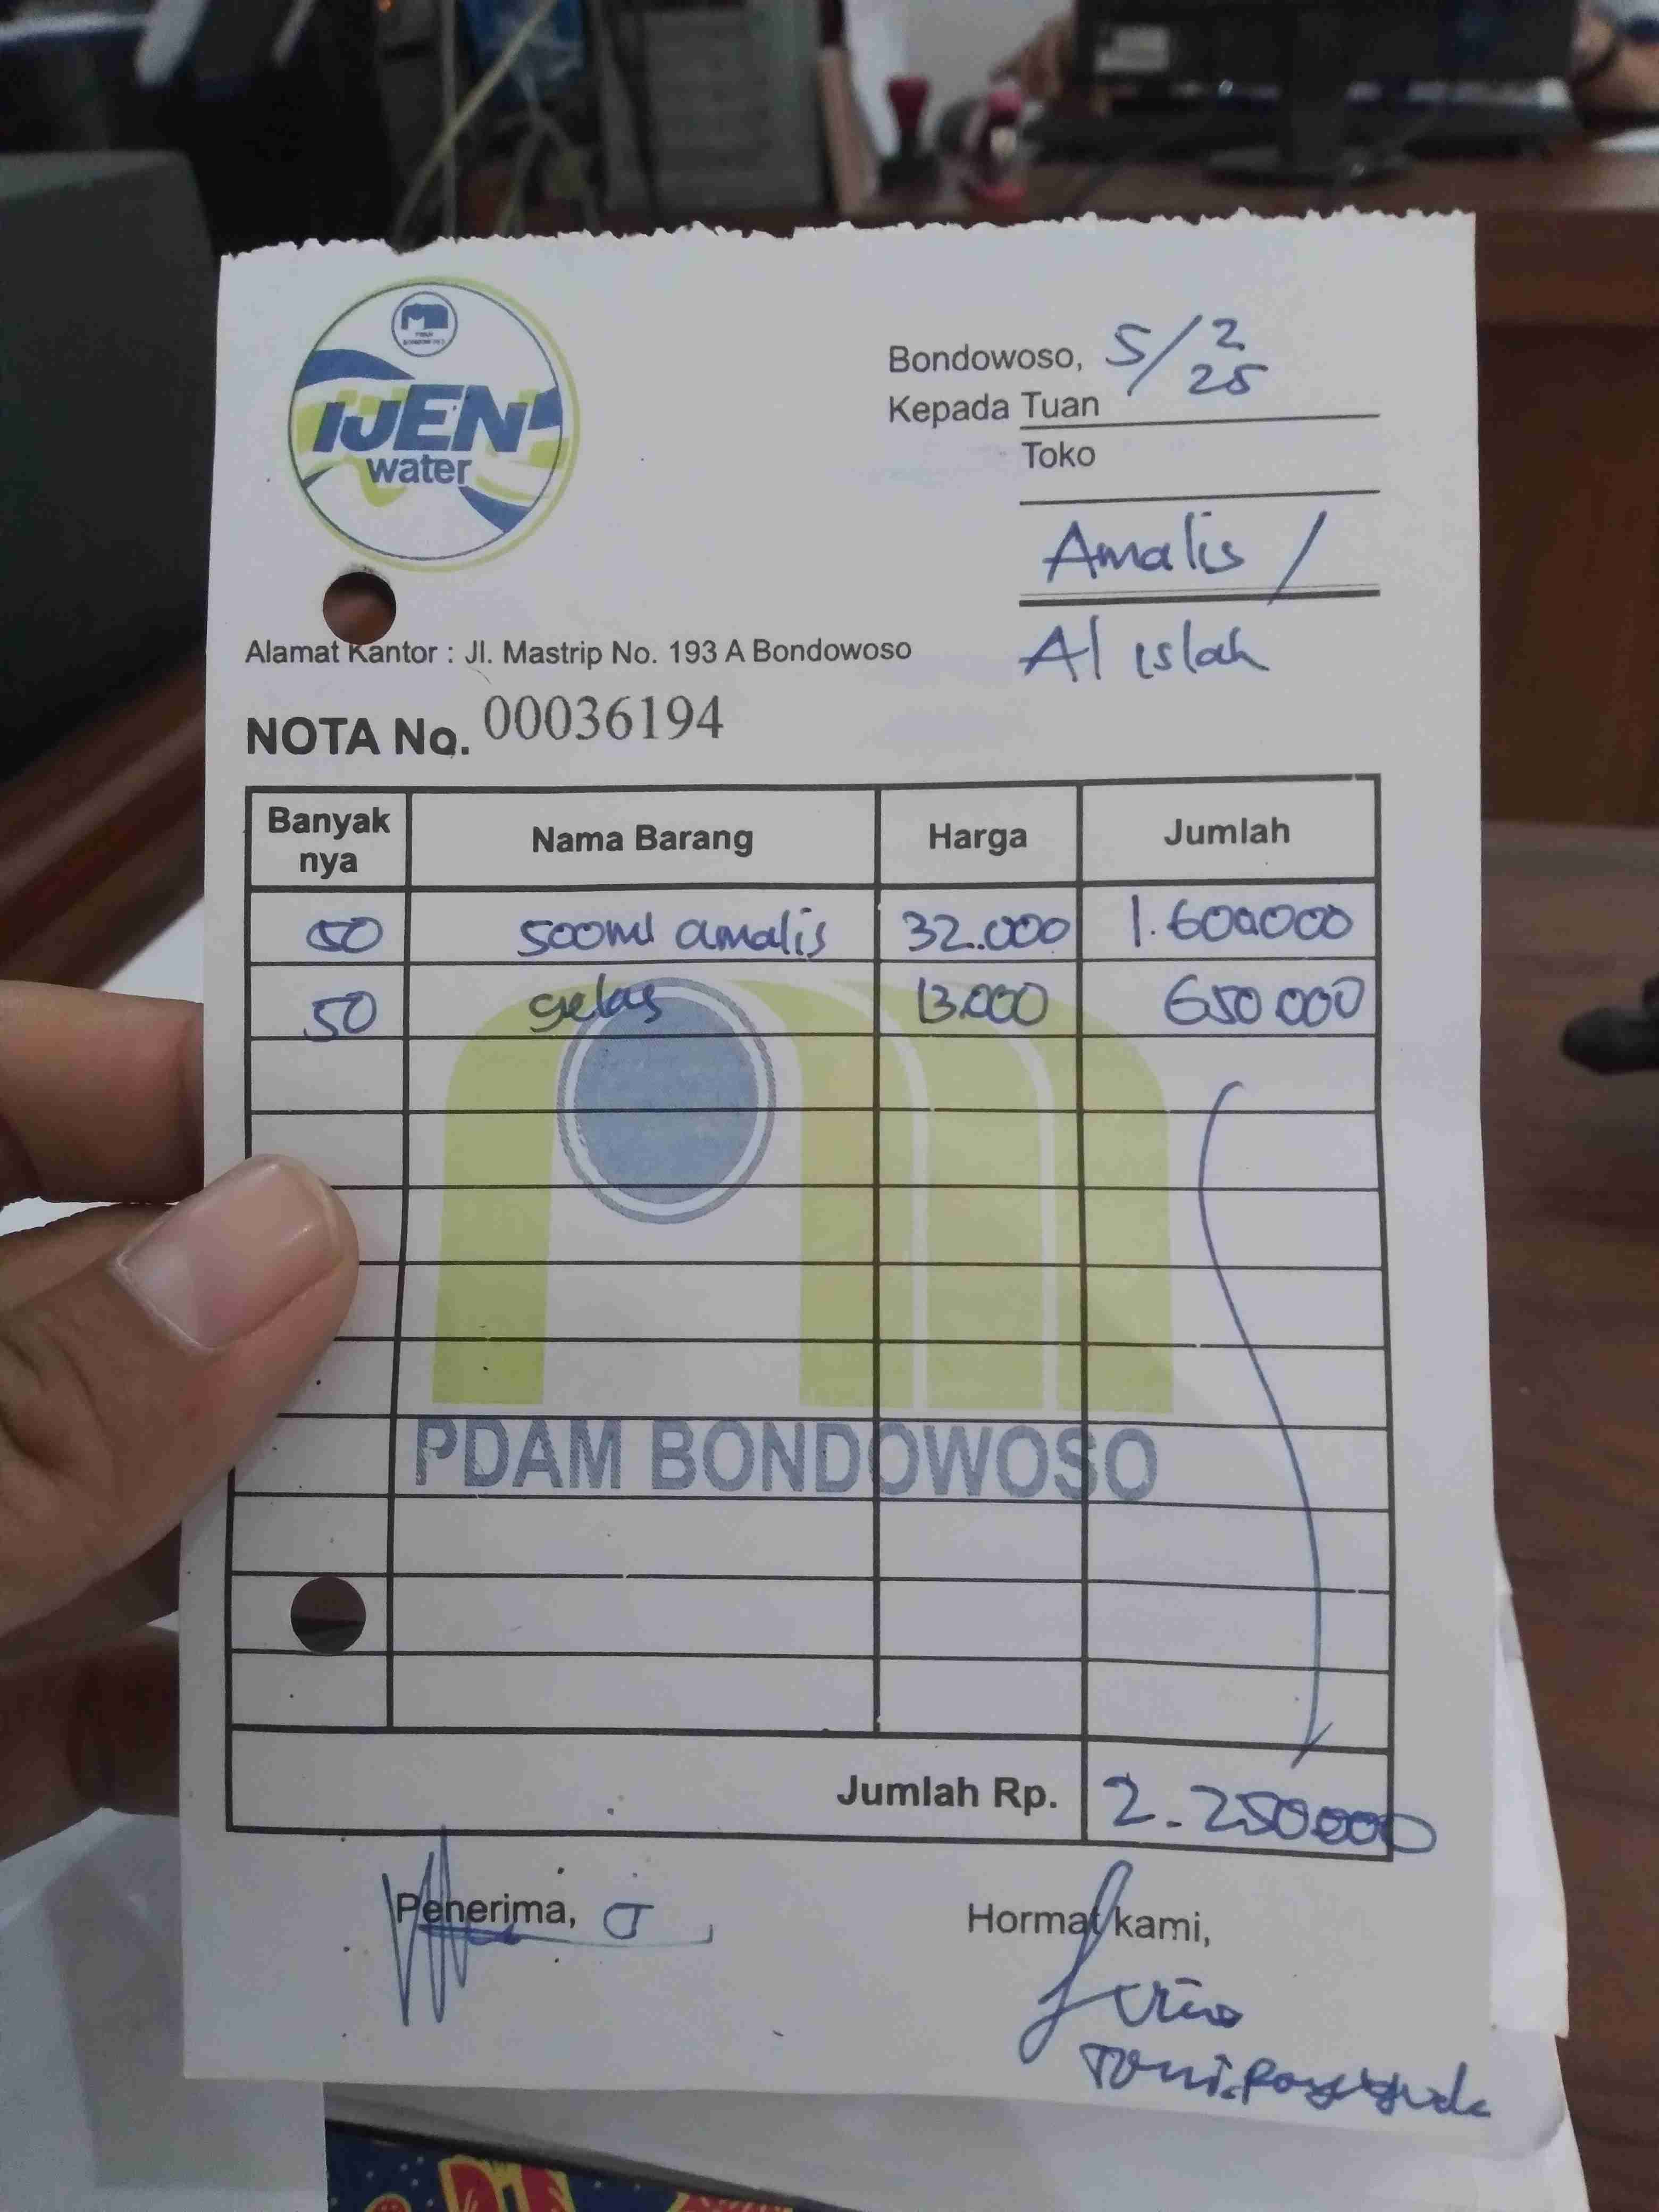 IJEN
water
Bondowoso, 5/2 25
Kepada Tuan
Toko
Amalis /
Al islah
Alamat Kantor : Jl. Mastrip No. 193 A Bondowoso
NOTA No. 00036194
Banyak nya Nama Barang Harga Jumlah
50 500ml amalis 32.000 1.600.000
50 gelas 13.000 650.000
PDAM BONDOWOSO
Jumlah Rp. 2.250.000
Penerima, Hormat kami,